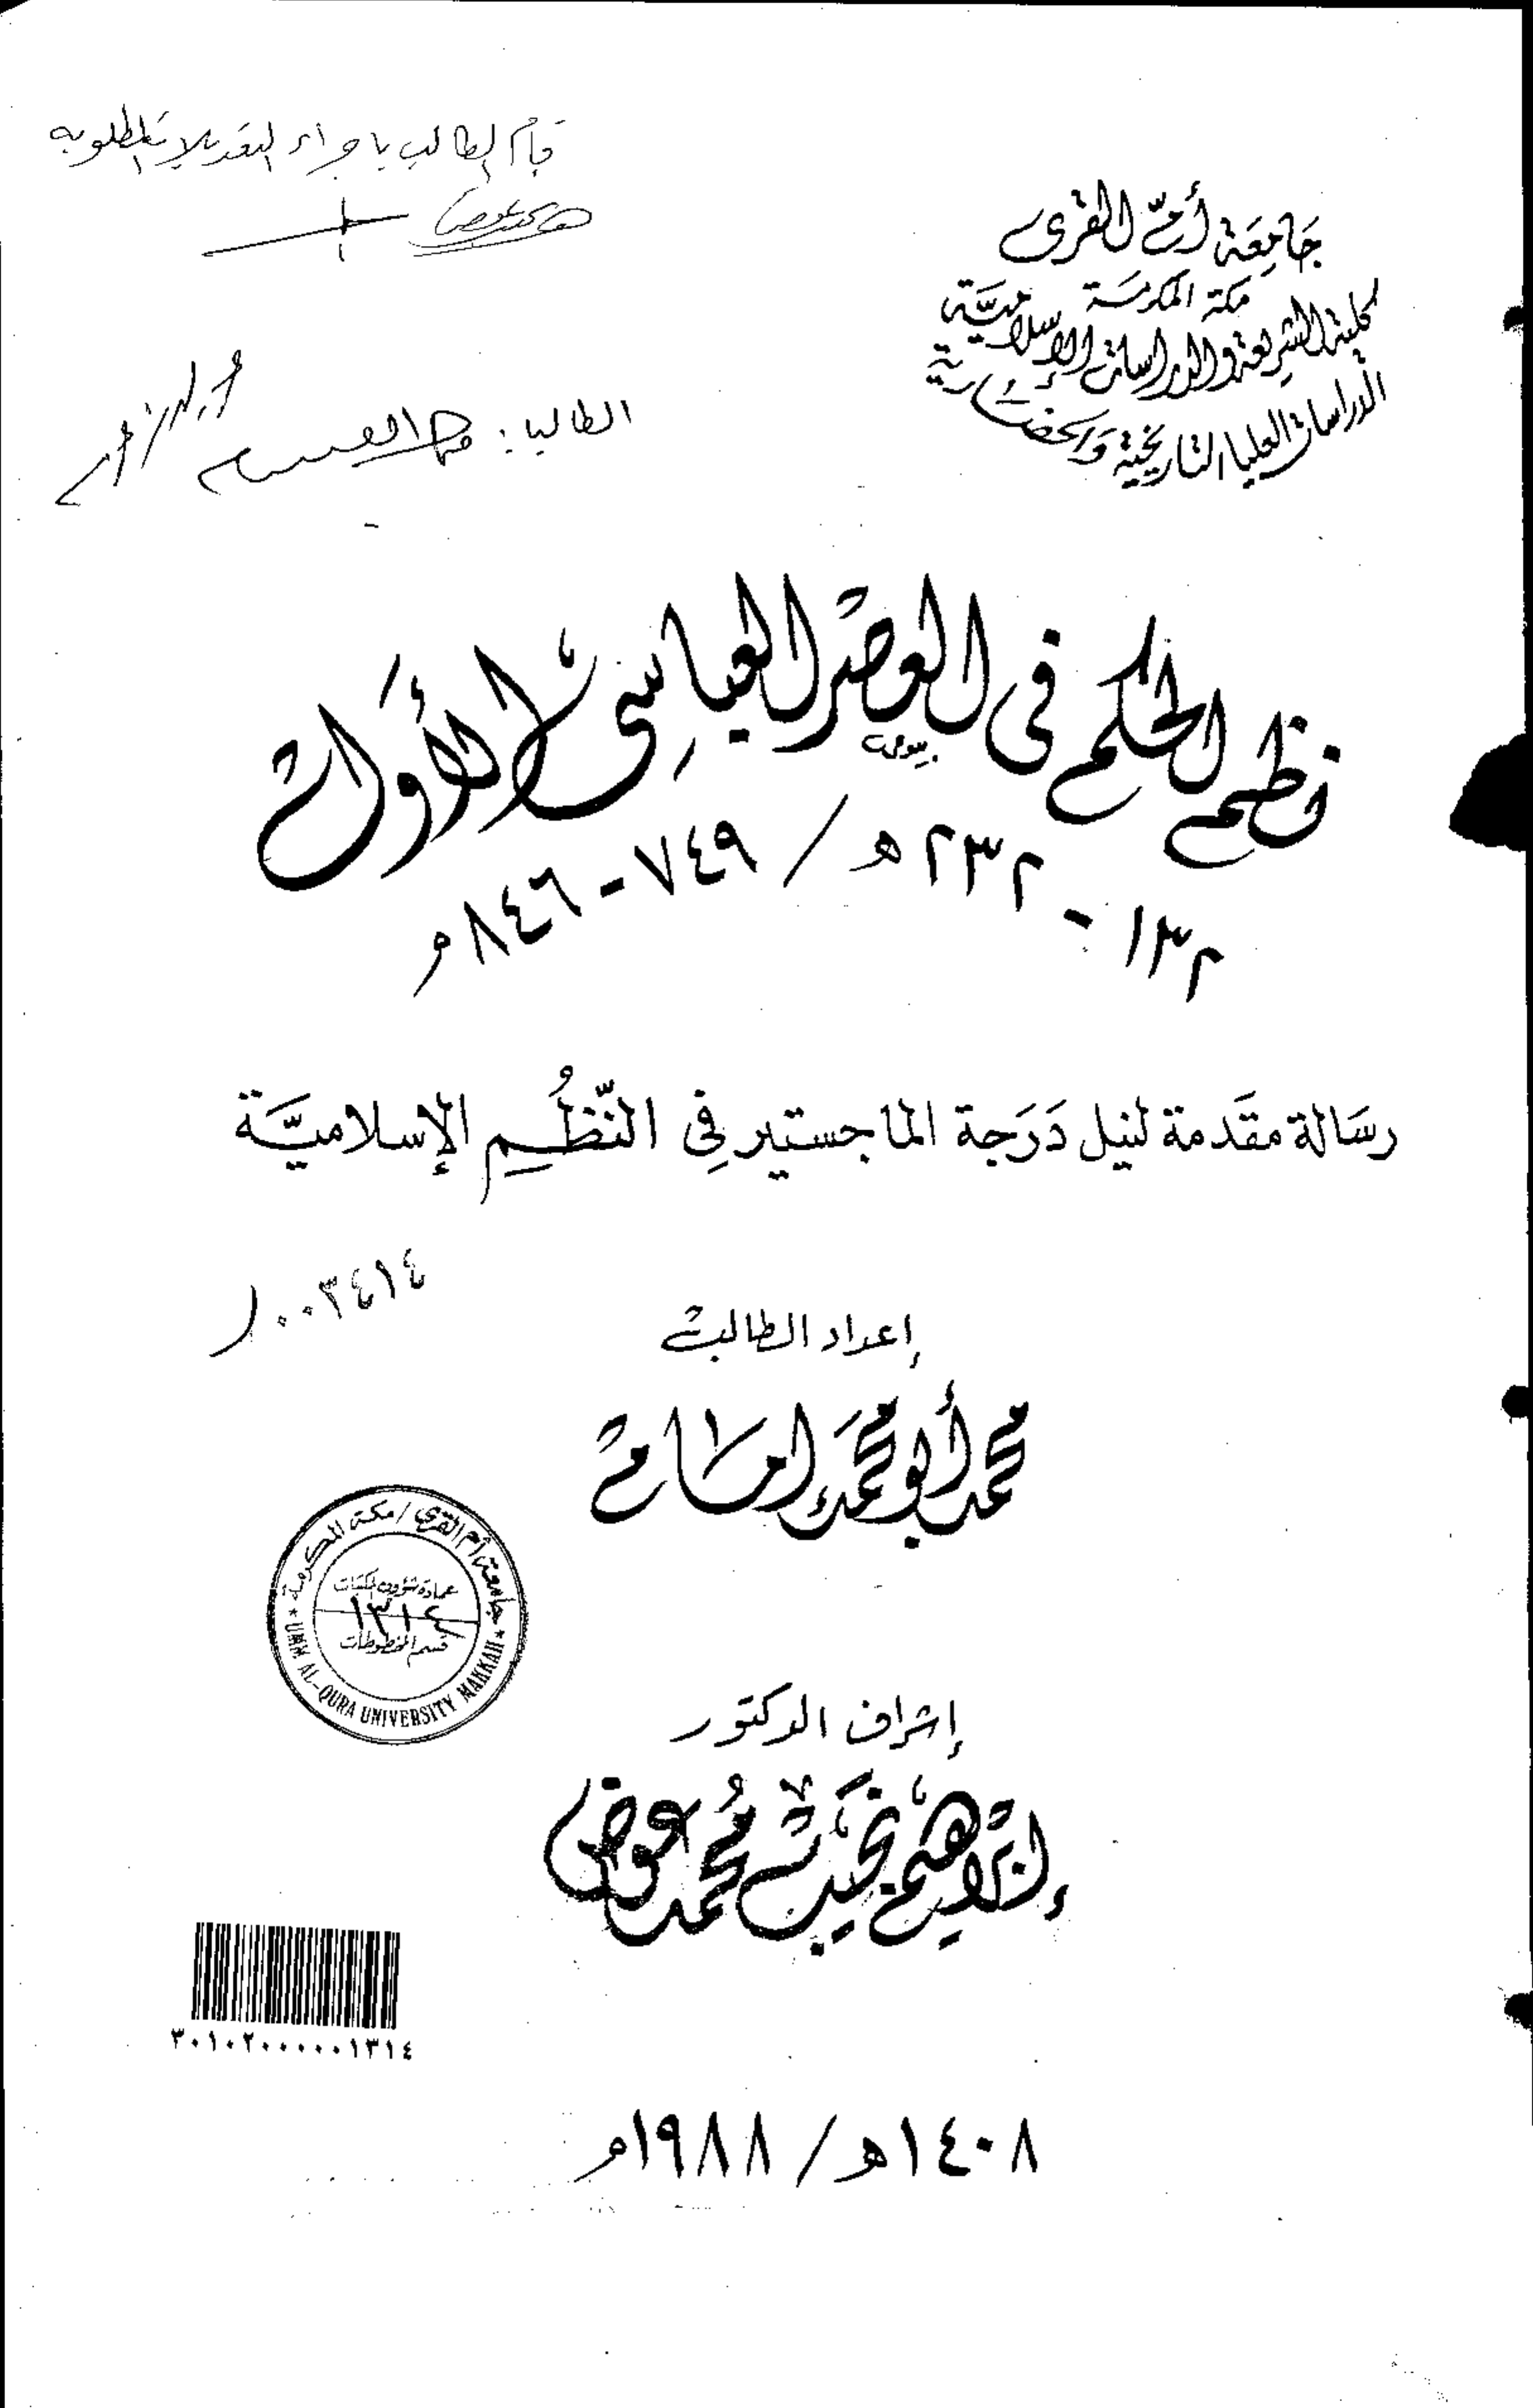 قام الطالب باجراء التعديلات المطلوبه
جَامِعَة أم القرى
مكة المكرمَة
كلية الشريعة والدراسات الإسلاميَّة
الدراسات العليا التاريخية وَالحضَارية
الطالب:
نظم الحكم فى العصر العباسى الأول
١٣٢ - ٢٣٢ ه / ٧٤٩ - ٨٤٦م
رسَالة مقَدمة لنيل دَرَجة الماجستير فِى النُّظُمِ الإسلاميَّة
٠٠٣٤١٤
إعداد الطالب
محمد أبو محمد إمام
جامعة أم القرى / مكة المكرمة
عمادة شؤون المكتبات
١٣١٤
قسم المخطوطات
UMM AL-QURA UNIVERSITY MAKKAH
إشراف الدكتور
إبراهيم نجيب محمد عوض
٣٠١٠٢٠٠٠٠٠١٣١٤
١٤٠٨ه / ١٩٨٨م